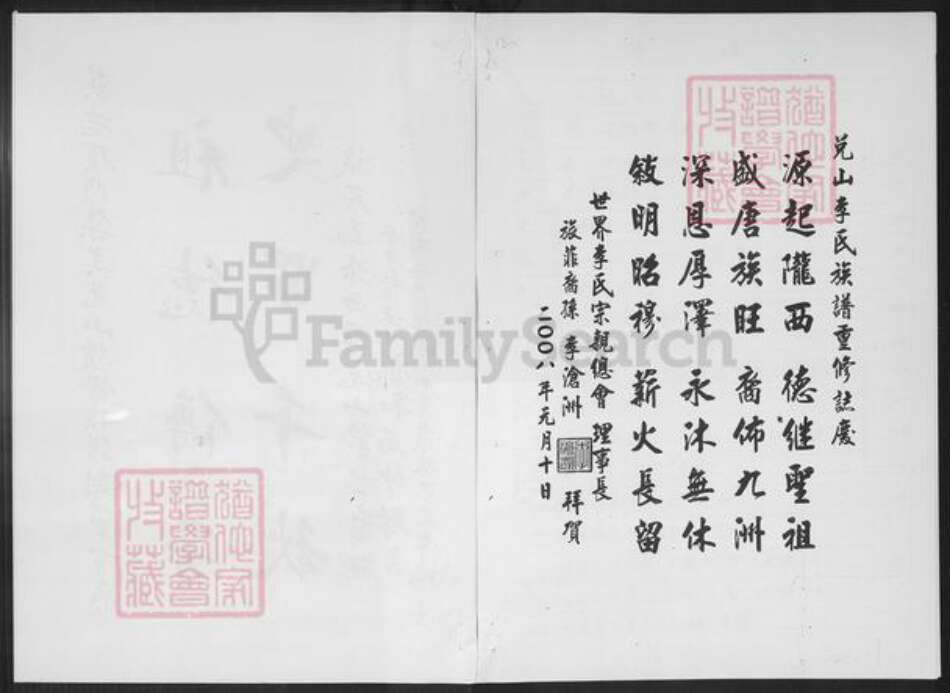 兑山李氏族譜重修誌慶
源起隴西 德继聖祖
盛唐族旺 裔佈九洲
深恩厚澤 永沐無休
敍明昭穆 薪火長留
世界李氏宗親總會 理事長
旅菲裔孫 李滄洲 拜賀
二00八年元月十日
猶他家
譜學會
收藏
猶他家
譜學會
收藏
FamilySearch